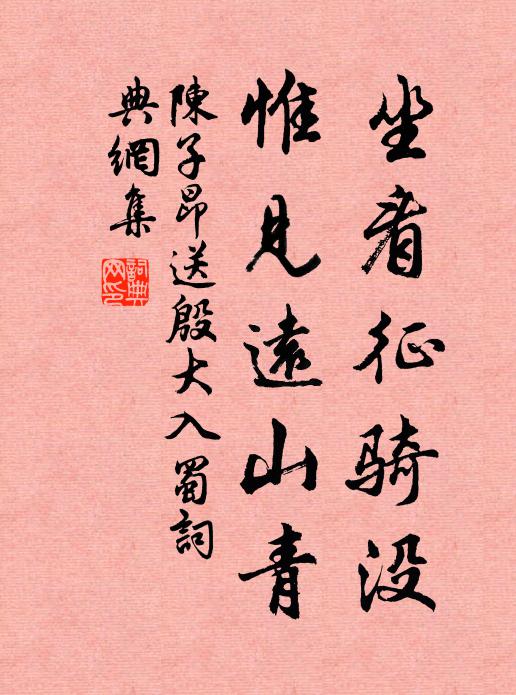 坐看征骑没
惟見遠山青
陳子昂送殷大入蜀詞
典網集
詞典网印